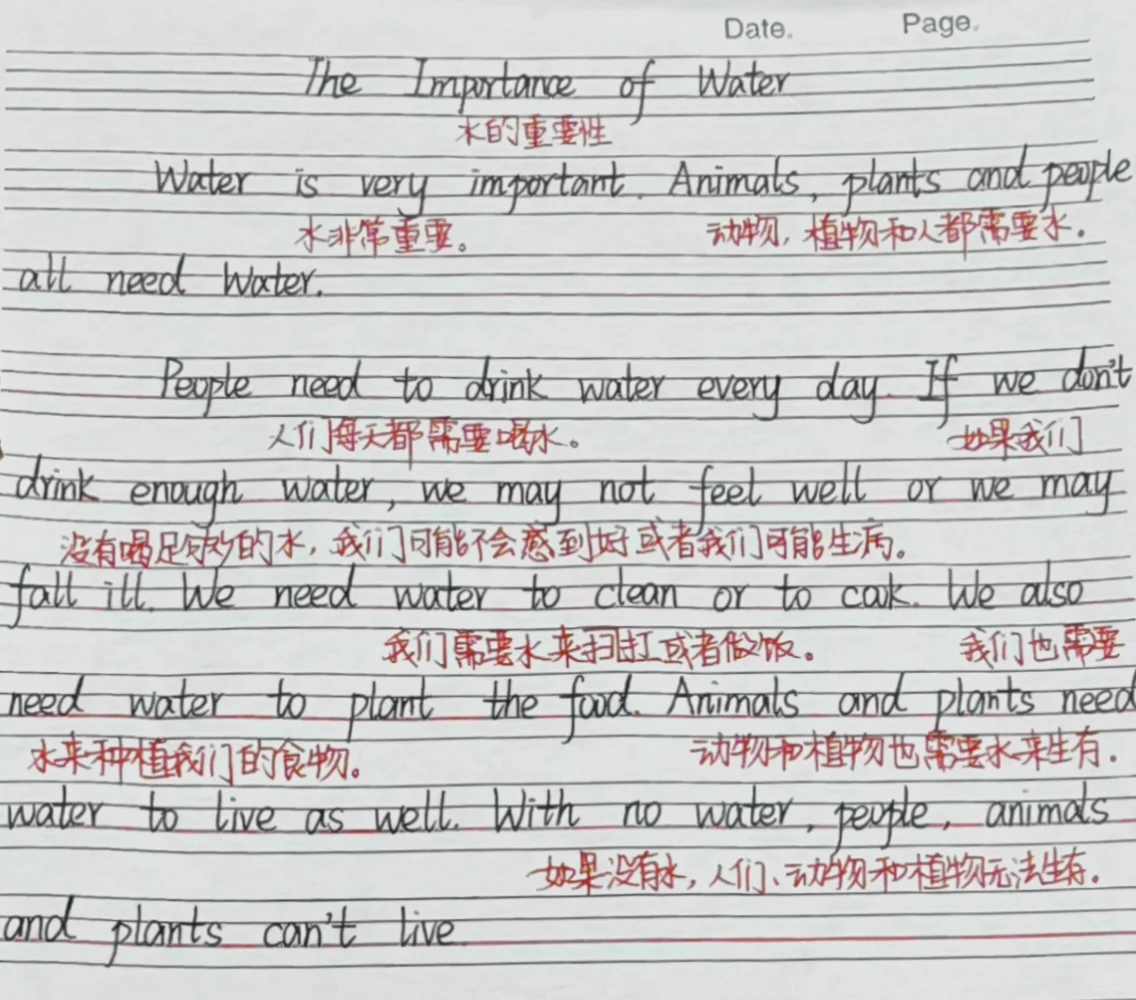 Date. Page.
The Importance of Water
水的重要性
Water is very important. Animals, plants and people
水非常重要。 动物,植物和人都需要水.
all need Water.
People need to drink water every day. If we don't
人们每天都需要喝水。 如果我们
drink enough water, we may not feel well or we may
没有喝足够的水,我们可能不会感到好或者我们可能生病。
fall ill. We need water to clean or to cook. We also
我们需要水来扫打或者做饭。 我们也需要
need water to plant the food. Animals and plants need
水来种植我们的食物。 动物和植物也需要水来生存.
water to live as well. With no water, people, animals
如果没有水,人们、动物和植物无法生存.
and plants can't live.